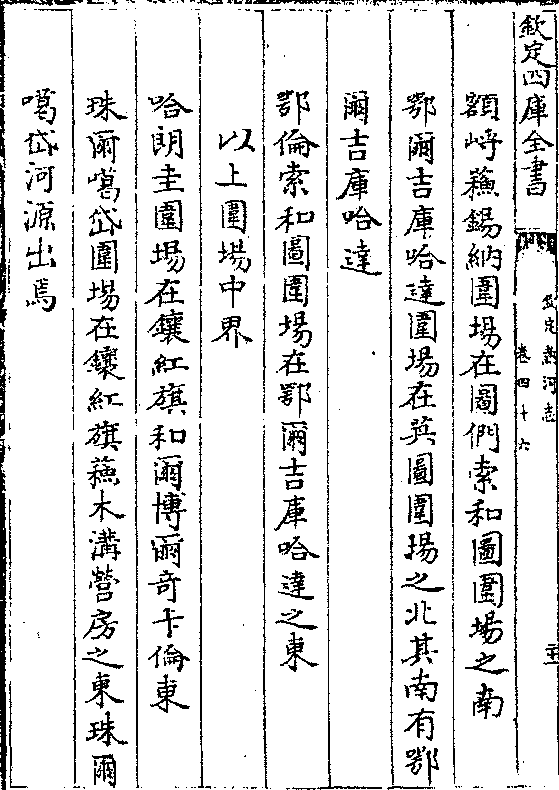 欽定四庫全書
欽定熱河志
卷四十六
額埓蘓錫納圍場在圖們索和圖圍場之南
鄂爾吉庫哈達圍場在英圖圍場之北其南有鄂
爾吉庫哈達
鄂倫索和圖圍場在鄂爾吉庫哈達之東
以上圍場中界
哈朗圭圍場在鑲紅旗和爾博爾奇卡倫東
珠爾噶岱圍場在鑲紅旗蘓木溝營房之東珠爾
噶岱河源出焉